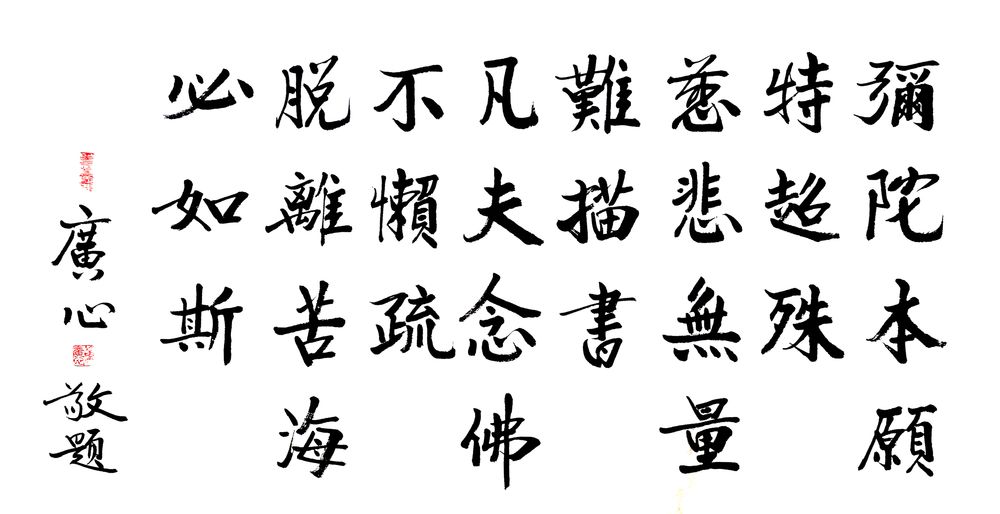 彌陀本願
特超殊
慈悲無量
難描書
凡夫念佛
不懶疏
脫離苦海
必如斯
廣心敬题